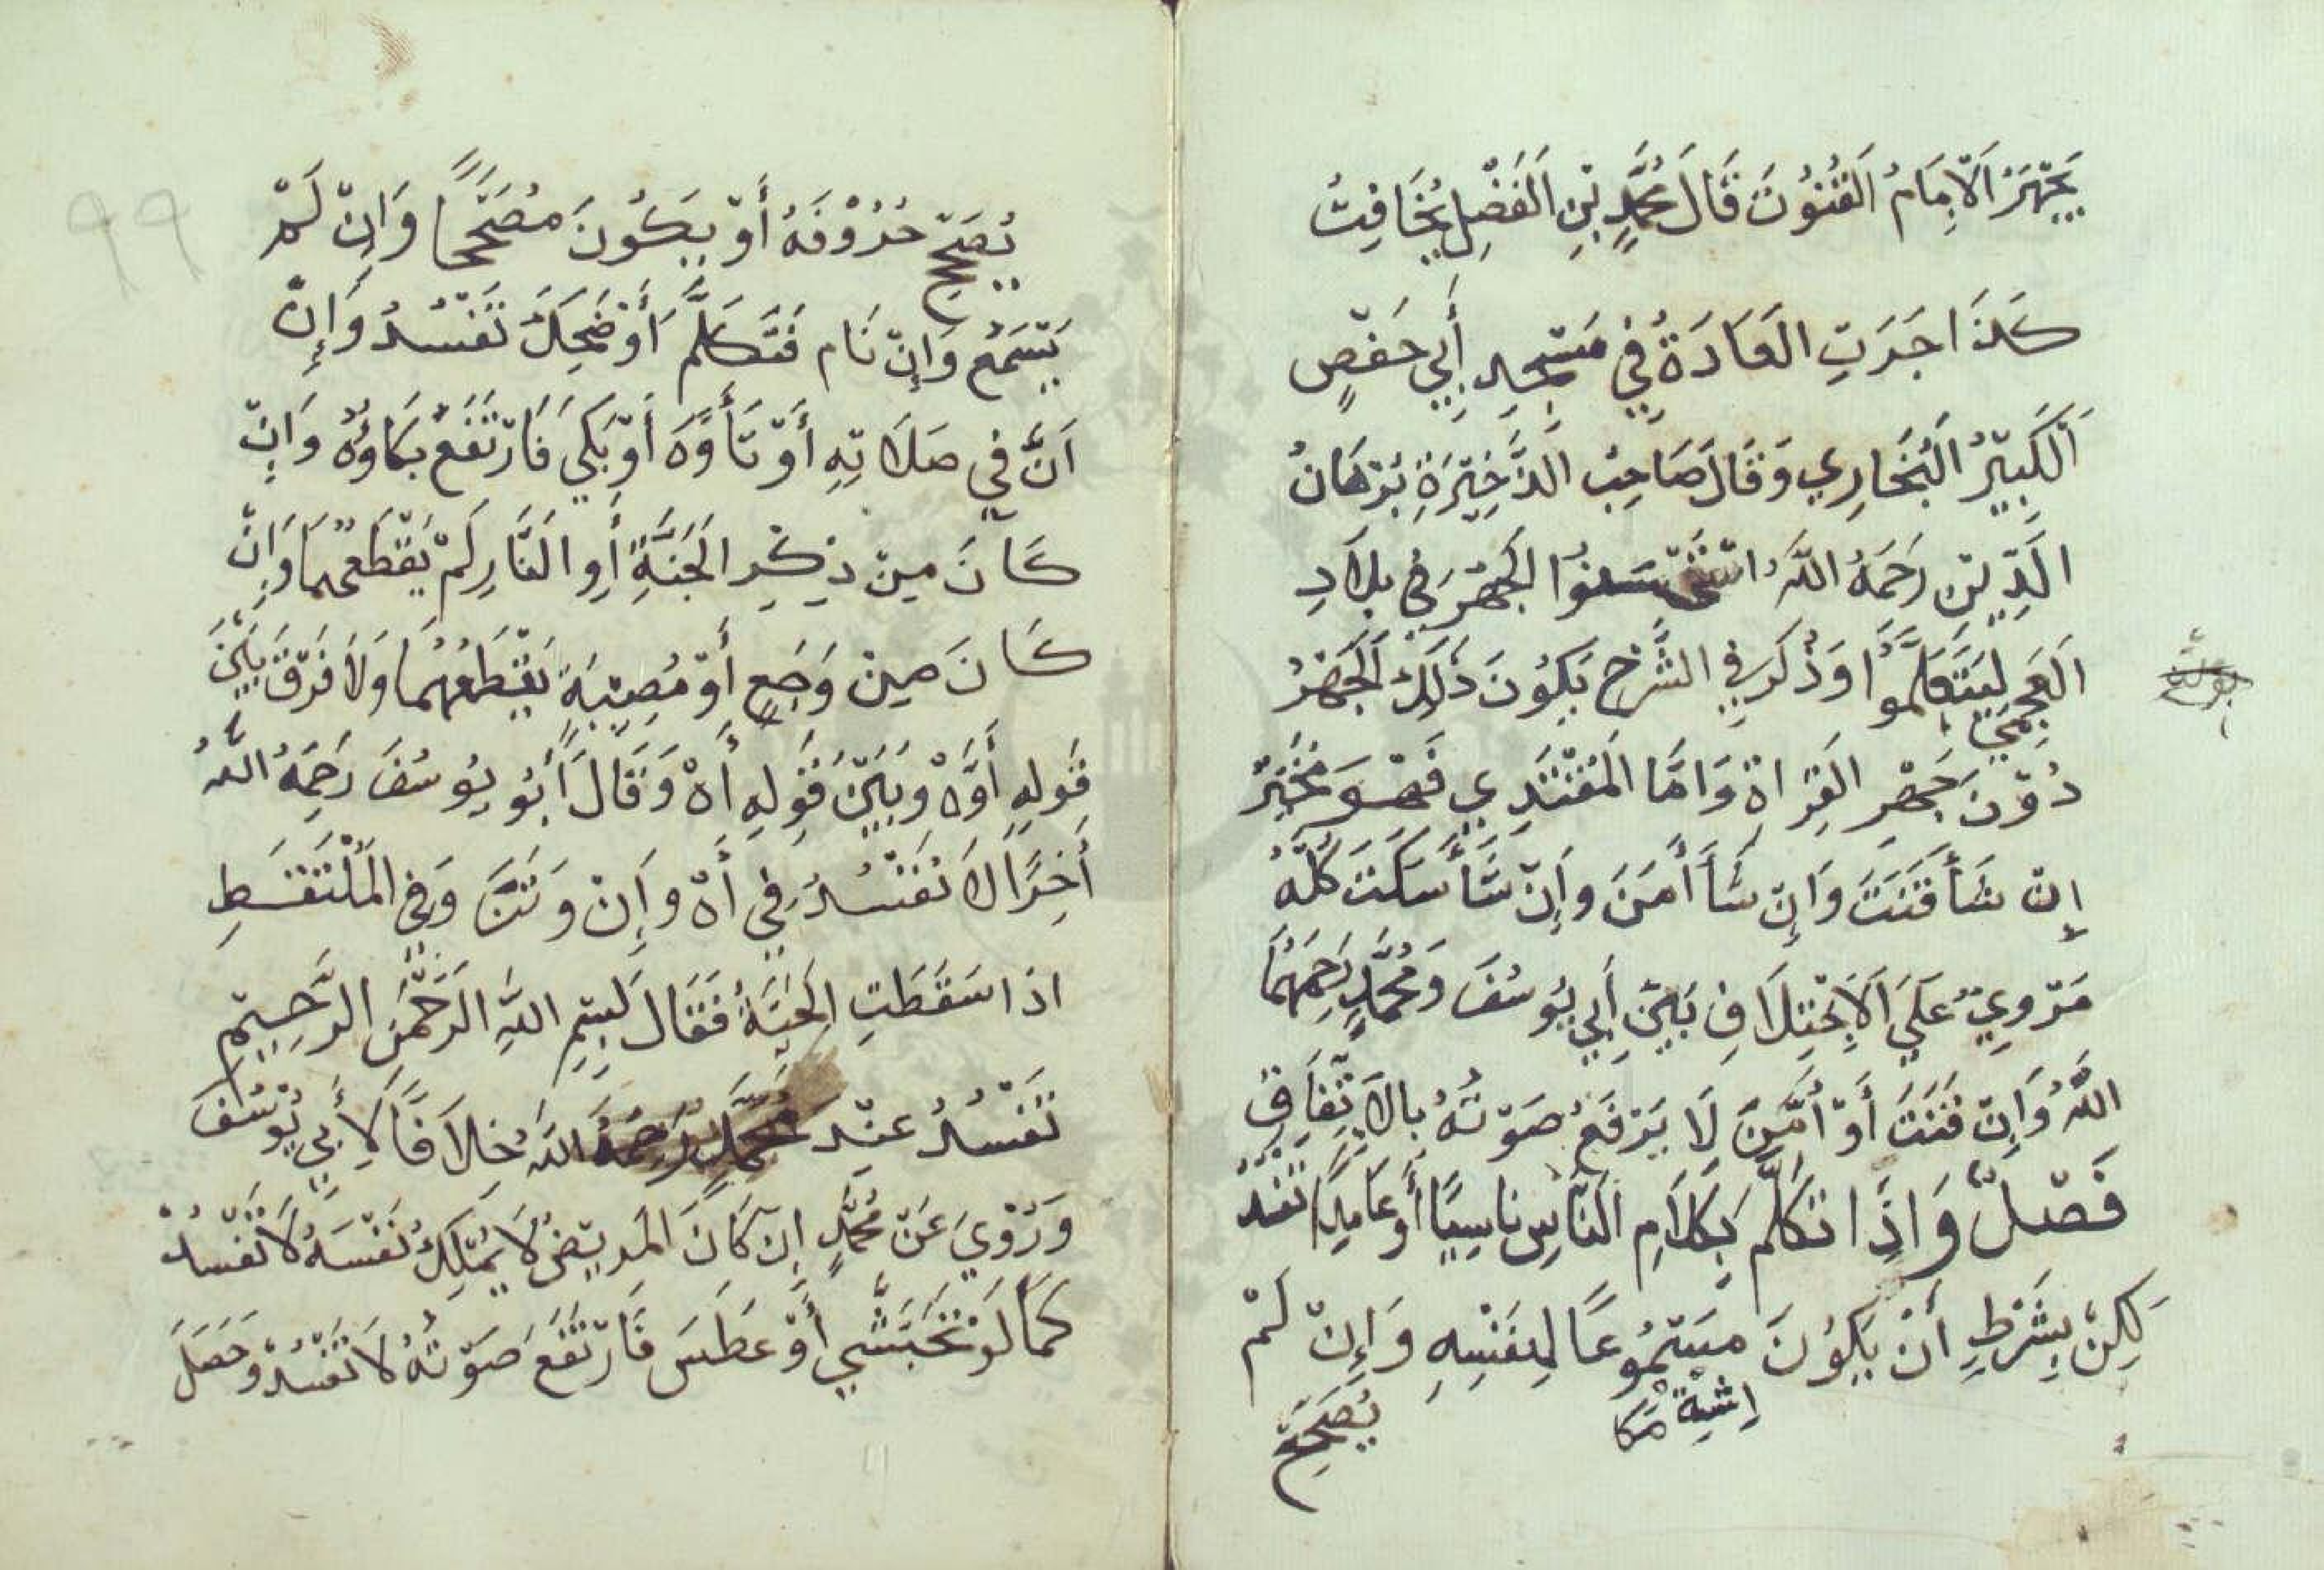 يَجْهَرُ الْاِمَامُ الْقُنُوْتَ قَالَ مُحَمَّدِ بْنِ الْفَضْلِ يُخَافِتُ
كَذَا جَرَتِ الْعَادَةُ فِي مَسْجِدِ أَبِي حَفْصٍ
اَلْكَبِيْرُ الْبُخَارِي وَقَالَ صَاحِبُ الذَّخِيْرَةِ بُرْهَانُ
الدِّيْنِ رَحِمَهُ اللَّهُ اسْتَحْسَنُوا الْجَهْرَ فِي بِلَادِ
الْعَجَمِيِّ لِيَتَعَلَّمُوا وَذُكِرَ فِي الشَّرْحِ يَكُوْنَ ذَلِكَ الْجَهْرُ
دُوْنَ جَهْرِ الْقِرَاةِ وَاَمَّا الْمُقْتَدِي فَهُوَ مُخَيَّرٌ
إِنْ شَأَ قَنَتَ وَاِنْ شَأَ أَمَنَ وَإِنْ شَأَ سَكَتَ كُلُّهُ
مَرْوِيٌّ عَلَى الْاِخْتِلَافِ بَيْنَ أَبِي يُوسُفَ وَمُحَمَّدٍ رَحِمَهُمَا
اللَّهُ وَاِنْ قَنَتَ أَوْ أَمَّنَ لَا يَرْفَعُ صَوْتَهُ بِالْاِتِّفَاقِ
فَصْلٌ وَاِذَا تَكَلَّمَ بِكَلَامِ النَّاسِ نَاسِيًا أَوْ عَامِدًا تَفْسُدُ
لَكِنْ بِشَرْطِ أَنْ يَكُوْنَ مَسْمُوْعًا لِنَفْسِهِ وَإِنْ لَمْ
يُصَحِّحْ
يُصَحِّحْ حُرُوْفَهُ أَوْ يَكُونَ مُصَحِّحًا وَاِنْ لَمْ
يَسْمَعْ وَاِنْ نَام فَتَكَلَّمَ أَوْ ضَحِكَ تَفْسُدُ وَإِنْ
اَنَّ فِي صَلَاتِهِ أَوْ تَأَوَّهَ أَوْ بَكَى فَارْتَفَعَ بُكَاؤُهُ وَاِنْ
كَانَ مِنْ ذِكْرِ الْجَنَّةِ أَوِ النَّارِ لَمْ يَقْطَعْهُمَا وَاِنْ
كَانَ مِنْ وَجَعٍ أَوْ مُصِيْبَةٍ يَقْطَعُهُمَا وَلَا فَرْقَ بَيْنَ
قَولِهِ أَوَّهْ وَبَيْنَ قَوْلِهِ أَهْ وَقَالَ أَبُو يُوسُفَ رَحِمَهُ اللَّهُ
أَخِرًا لَا تَفْسُدُ فِي أَهْ وَ وَفِي الْمُلْتَقَطِ
اذَا سَقَطَتِ الْحَيَّةُ فَقَالَ بِسْمِ اللَّهِ الرَّحْمَنِ الرَّحِيْمِ
تَفْسُدُ عِنْدَ مُحَمَّدٍ رَحِمَهُ اللَّهُ خِلَافًا لِأَبِي يُوْسُفَ
وَرُوِيَ عَنْ مُحَمَّدٍ اِنْ كَانَ الْمَرِيْضُ لَا يَمْلِكُ نَفْسَهُ لَا تَفْسُدُ
كَمَا لَوْ تَجَشَّى أَوْ عَطَسَ فَارْتَفَعَ صَوْتُهُ لَا تَفْسُدُ وَحَصَلَ
٩٩